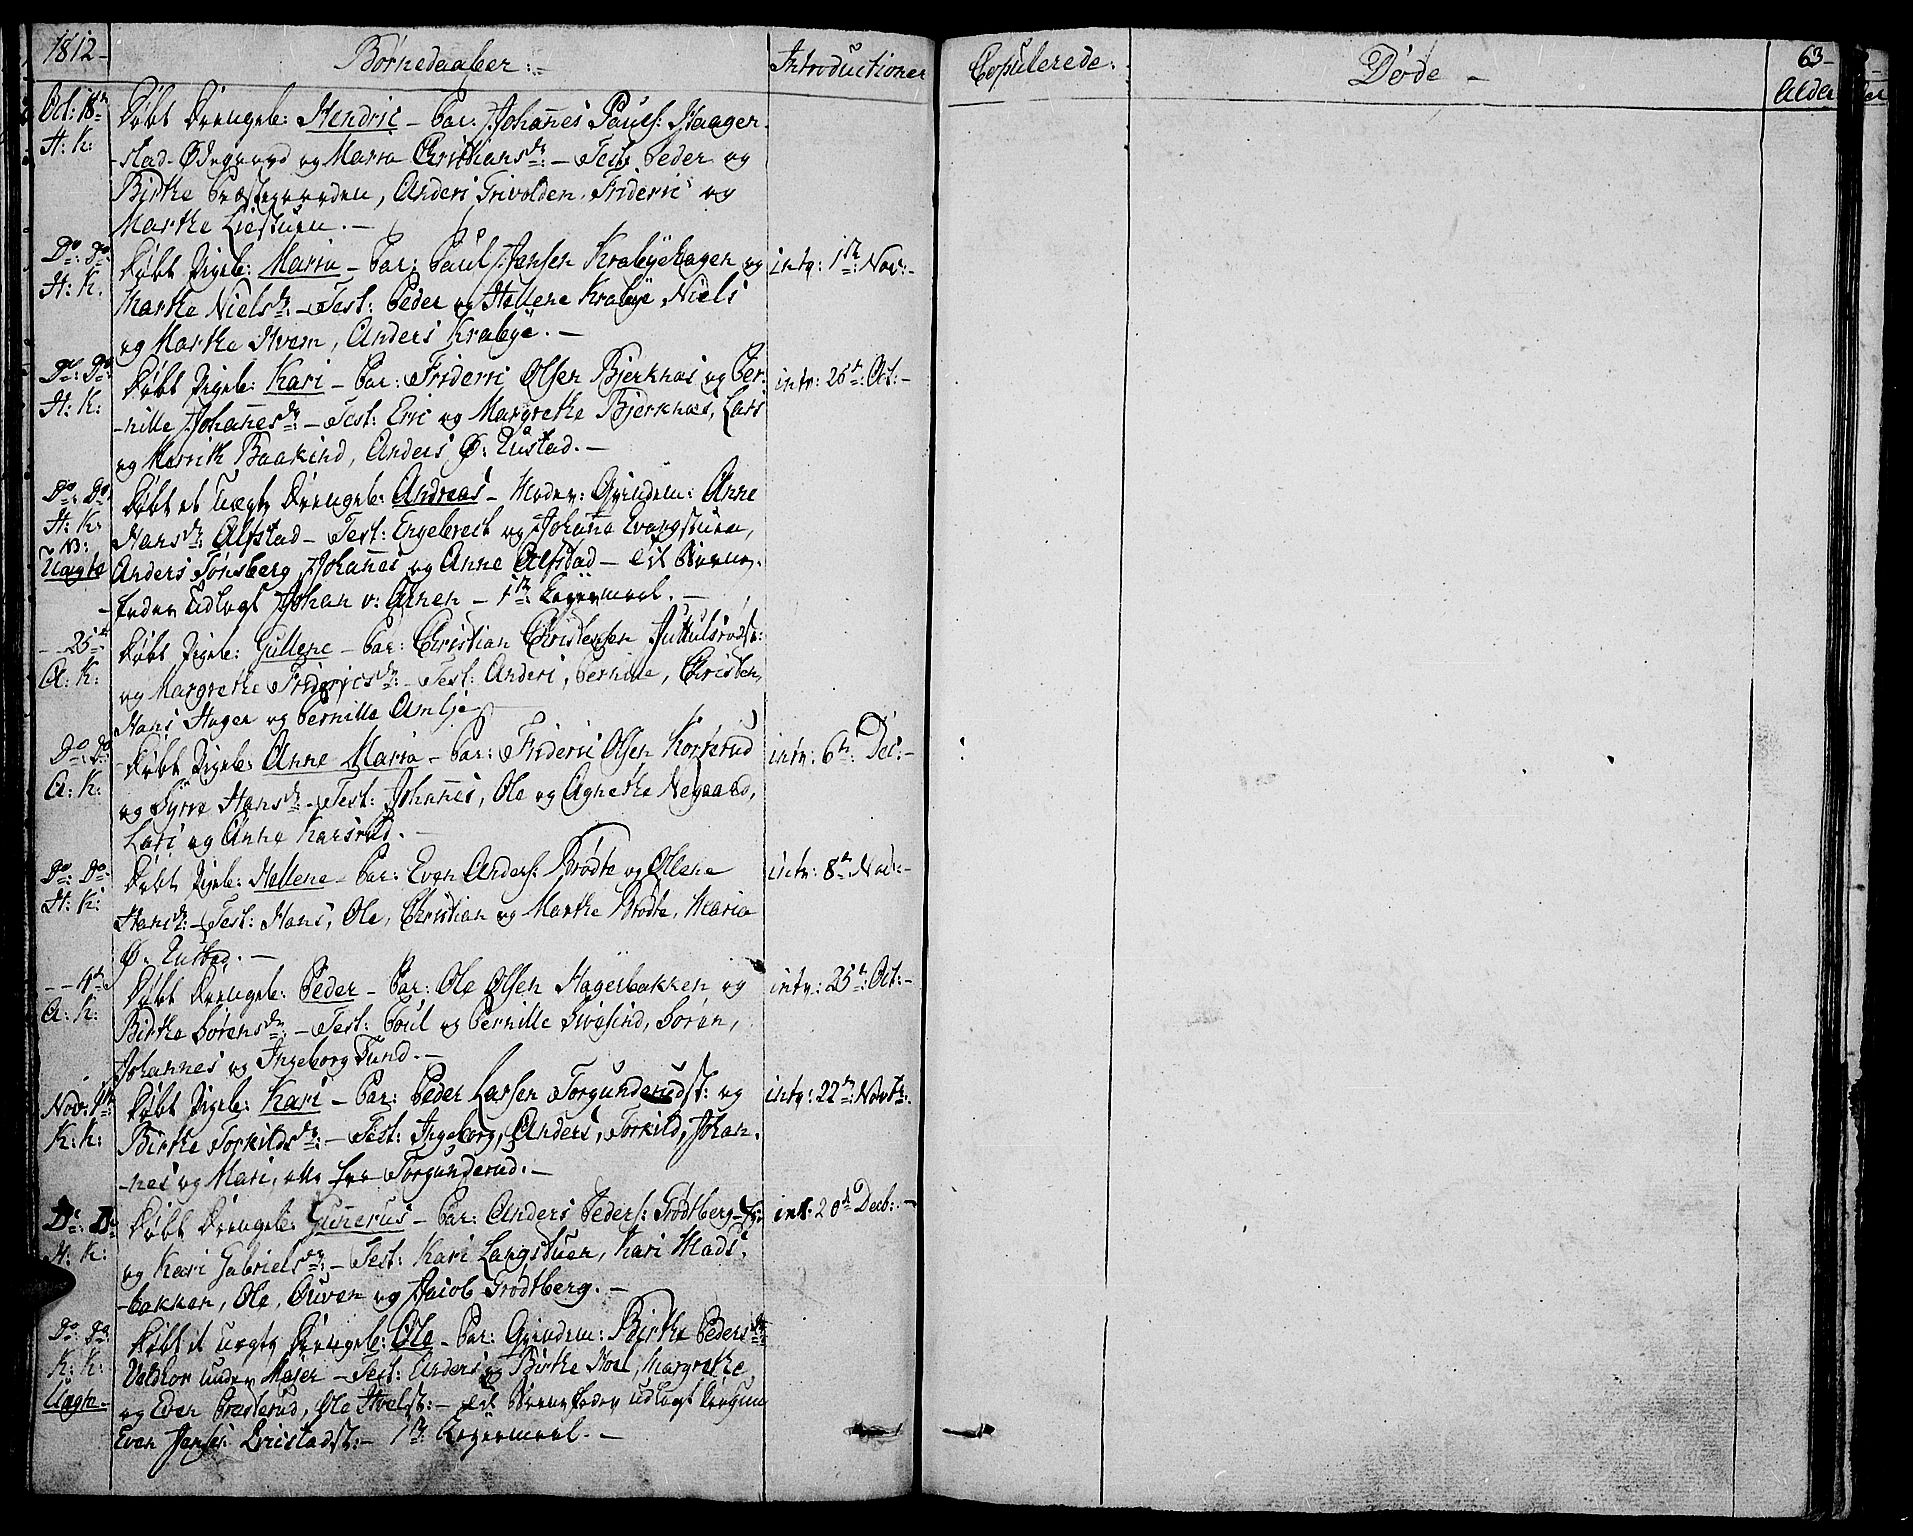 1812-
Børnedaaber:-
Introductioner
Copulerede:
Døde -
63-
Alder
Oct: 18de
H: K:
Døbt Drengeb: Hendric - Par: Johañes Pauls: Haager-
-stad-Ødegaard og Maria Christiansdr: - Test: Peder og
Birthe Præstegaarden, Anders Frivolden, Frideric og
Marthe Liestuen. -
Do: Do:
H: K:
Døbt Pigeb: Maria - Par: Paul Jensen Krabyehagen og
Marthe Nielsdr: - Test: Peder og Hellene Krabye, Niels
og Marthe Hvem, Anders Krabye. -
intr: 1te Nov: -
Do: Do:
H: K:
Døbt Pigeb: Kari - Par: Frideric Olsen Bjerknæs og Per-
-nille Johañesdr: - Test: Eric og Margrethe Bjerknæs, Lars
og Marith Baakind, Anders Ø: Rustad. -
intr: 25de: Oct: -
Do: Do:
H: K:
NB:
Uægte
Døbt et uægte Drengeb: Andreas - Moder: Qvindem: Anne
Hansdr: Alfstad - Test: Engebrect og Johaña Evangstuen,
Anders Tønsberg, Johañes og Anne Alfstad - Til Barne-
-fader udlagt Johan v: Ahnen - 1te: Leyermaal. -
- - 25de
A: K:
Døbt Pigeb: Gullene - Par: Christian Christensen
og Margrethe Fridericsdr: - Test: Anders, Pernille, Christen,
Hans Hager og Pernille Amlje -
Do: Do
A: K:
Døbt Pigeb: Anne Maria - Par: Frideric Olsen Korsrud
og Syrve Hansdr: - Test: Johañes, Ole og Agnethe Negaard,
Lars og Anne Karsrud. -
intr: 6te: Dec: -
Do: Do:
H: K:
Døbt Pigeb: Hellene - Par: Even Anders: Brødte og Ollene
Hansdr: - Test: Hans, Ole, Christian og Marthe Brødte, Maria
Ø: Rustad. -
intr: 8de Nov: -
- - 4de
A: K:
Døbt Drengeb: Peder - Par: Ole Olsen Hagerbakken og
Birthe Sørensdr: - Test: Poul og Pernille Sivesind, Søren,
Johannes og Ingeborg Tund. -
intr: 25de: Oct: -
Nov: 1te
K: K:
Døbt Pigeb: Kari - Par: Peder Larsen Torgunderudst: og
Birthe Torkildsdr: - Test: Ingeborg, Anders, Torkild, Johan-
-nes og Mari, alle fra Torgunderud. -
intr: 22de: Novbr:
Do: Do
H: K:
Døbt Drengeb: Guñerus - Par: Anders Peders: Grødtberg-Eje
og Kari Gabrielsdr: - Test: Kari Langstuen, Kari Mads-
-bakken, Ole, Ouven og Jacob Grødtberg. -
int: 20de Decb: -
Do: Do:
K: K:
Uægte -
Døbt et uægte Drengeb: Ole - Par: Qvindem: Birthe Pedersdr
Valdhor under Majer - Test: Anders og Birthe Hoel, Margrethe
og Even Præsterud, Ole Hoelst: - Til Barnefader udlagt Dragun
Even Jensen Ericstadst: - 1te: Leyermaal. -